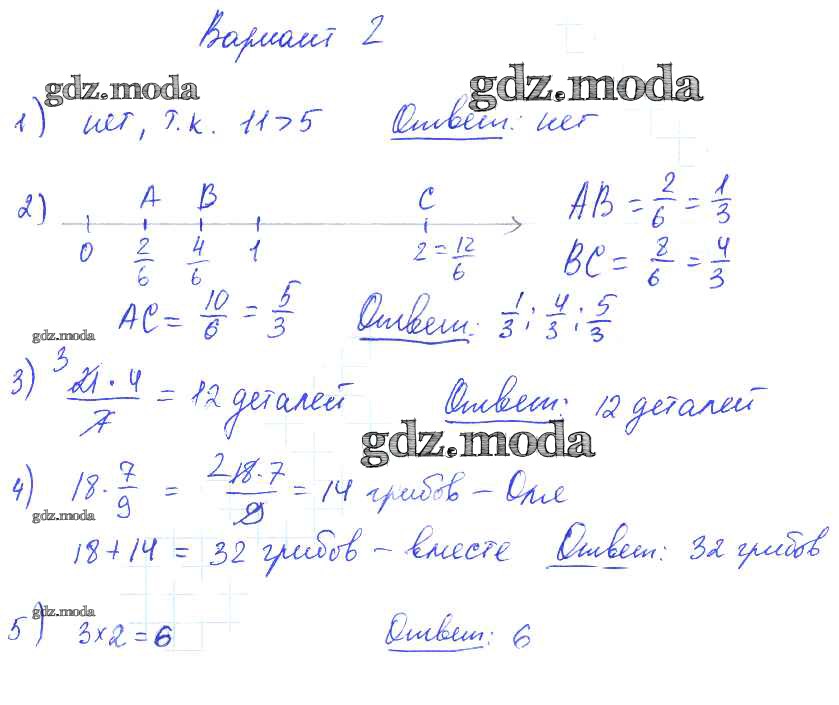 Вариант 2
gdz.moda gdz.moda
1) нет, т.к. 11>5 Ответ: нет
2) A B C AB = 2/6 = 1/3
0 2/6 4/6 1 2 = 12/6 BC = 8/6 = 4/3
AC = 10/6 = 5/3 Ответ: 1/3; 4/3; 5/3
gdz.moda
3) 3 21·4/7 = 12 деталей Ответ: 12 деталей
gdz.moda
4) 18·7/9 = 2 18·7/9 = 14 грибов – Оля
gdz.moda
18+14 = 32 грибов – вместе Ответ: 32 грибов
gdz.moda
5) 3×2=6 Ответ: 6